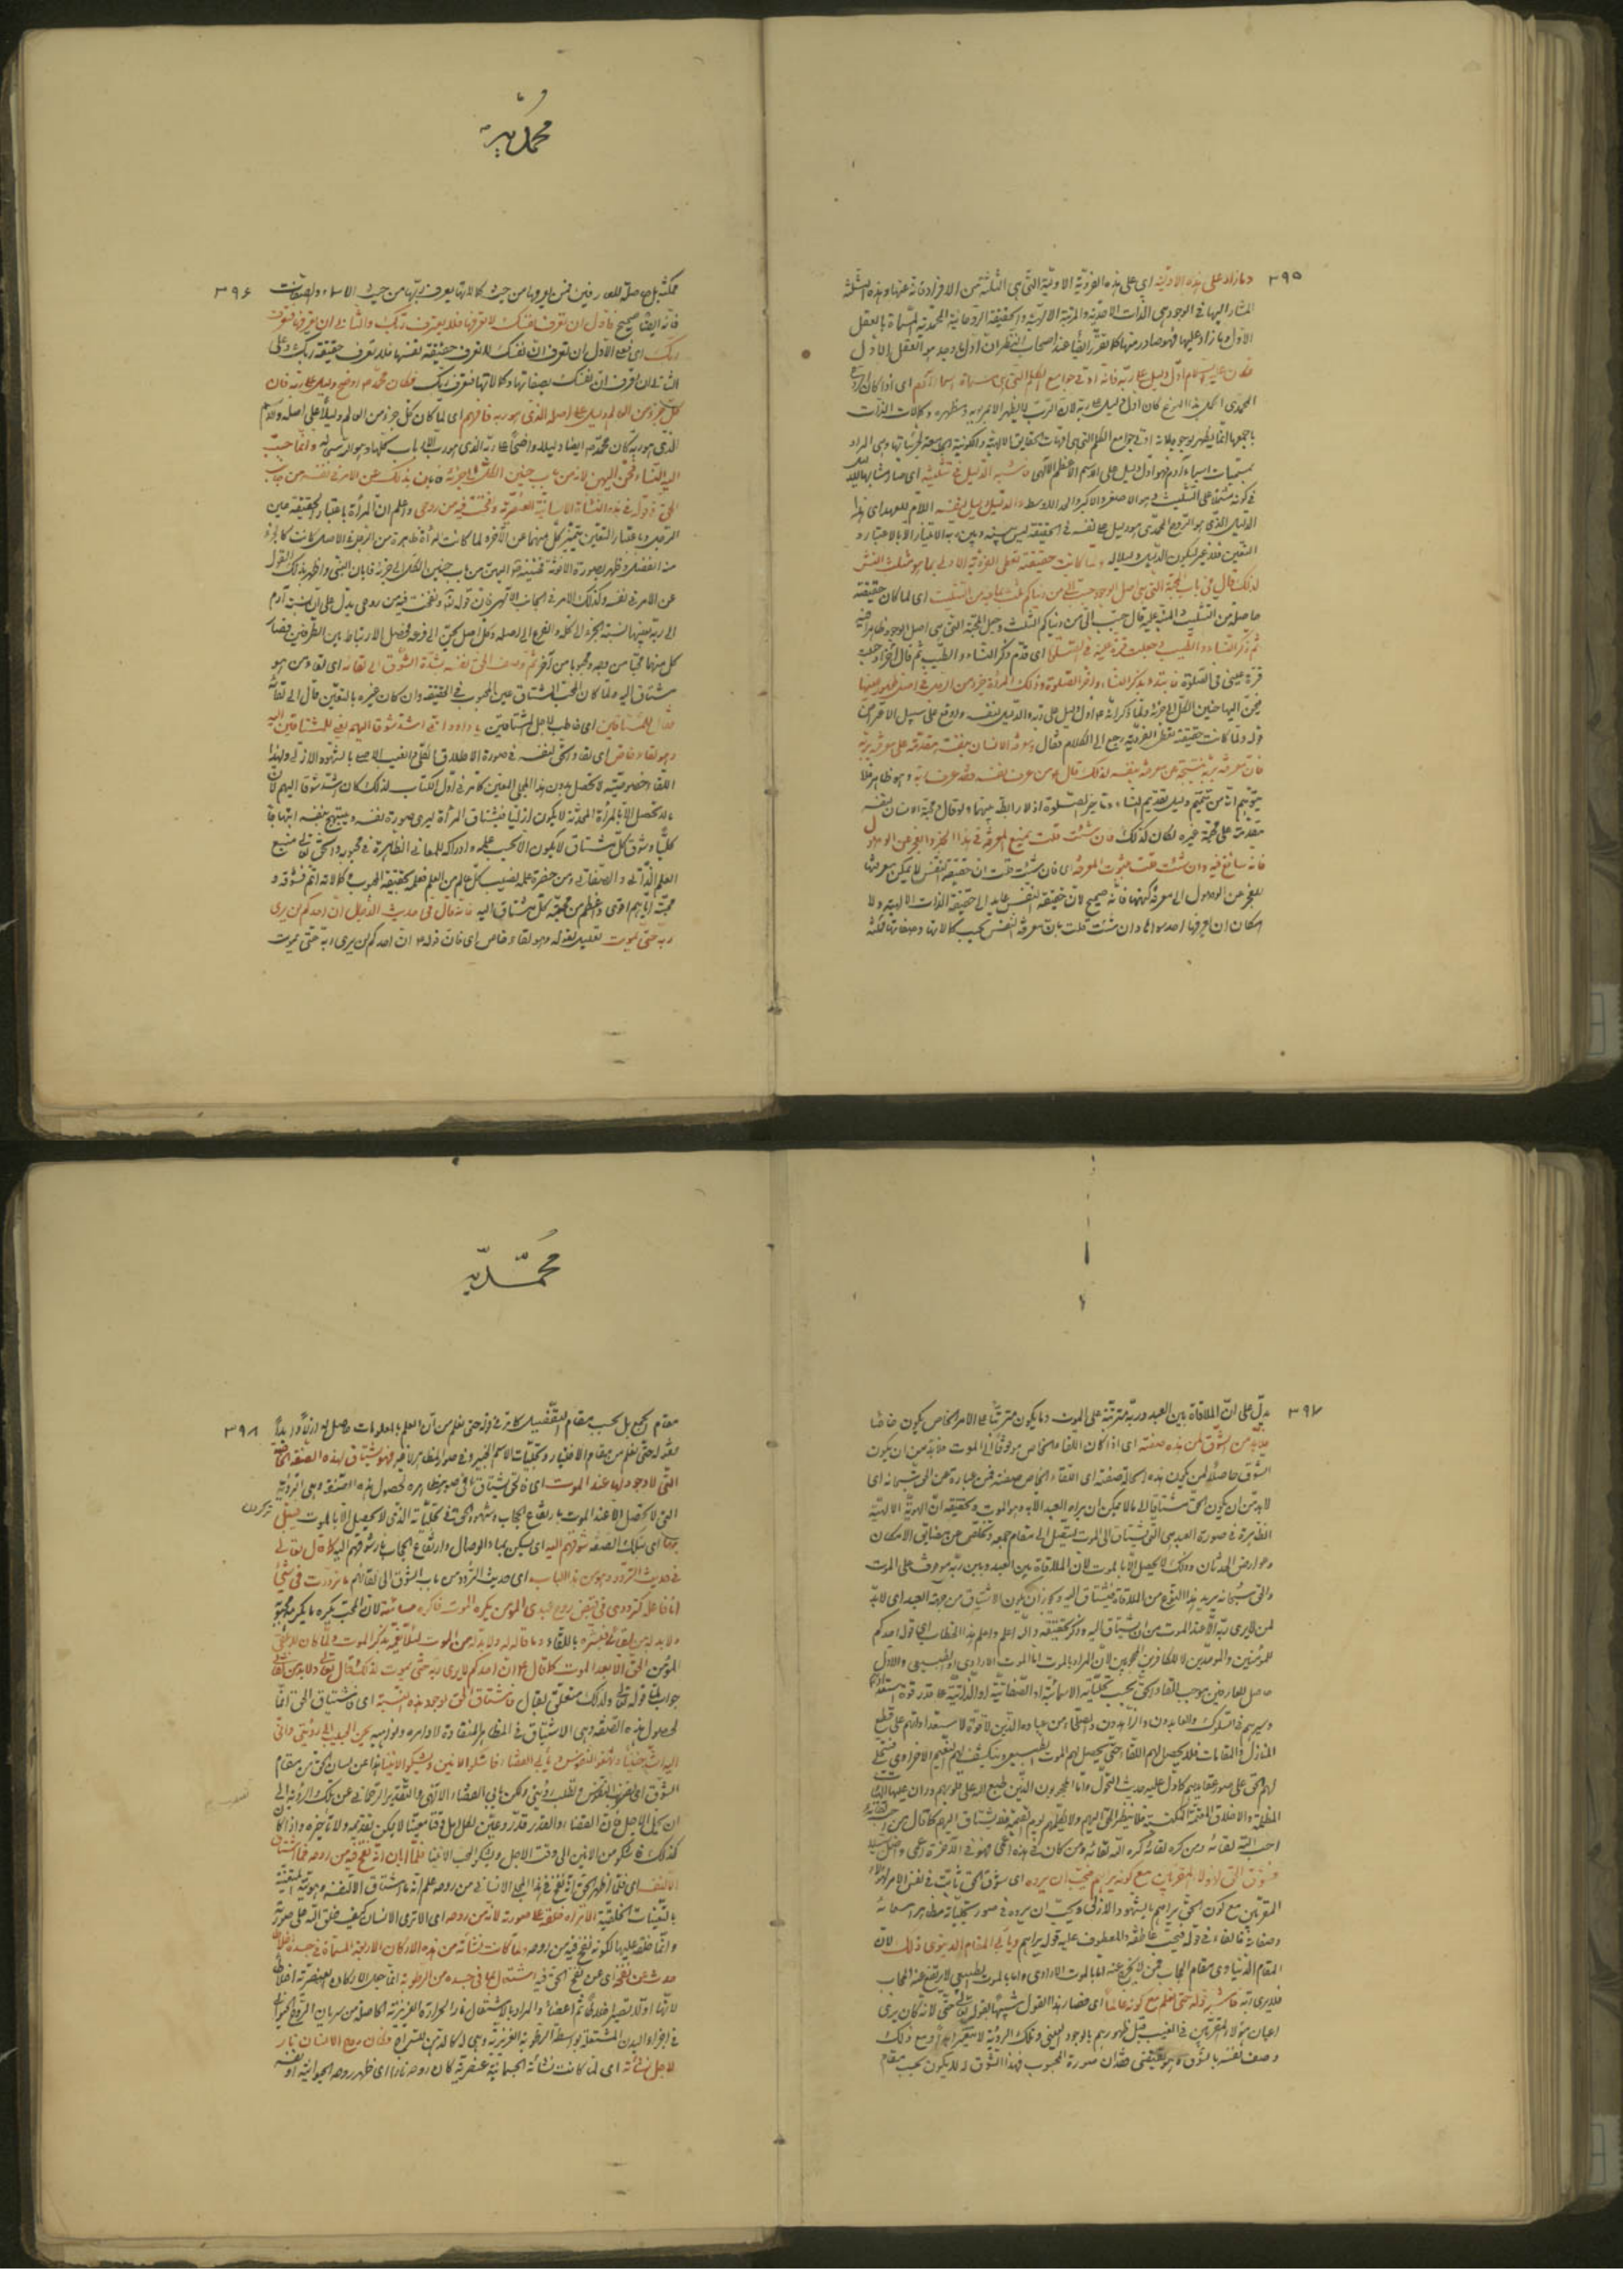 ٣٩٥
وما زاد على هذه الاولية اى على هذه الفردية الاولية التى هى الثلثة من الافراد فانه عنها وهذه الثلثة
المشار اليها فى الوجود هى الذات الاحدية والمرتبة الالهية والحقيقة الروحانية المحمدية المسماة بالعقل
الاول وما زاد عليها فهو صادر منها كما تقرر ايضا عند اصحاب النظر ان اول ما وجد هو العقل الاول
فكان عليه السلام اول دليل على ربه فانه اوتى جوامع الكلم التى هى مسميات اسماء آدم اى اذا كان
المحمدى اكمل هذا النوع كان اول دليل على ربه لان الرب لا يظهر الا بمربوبه ومظهره وكمالات الذات
باجمعها انما يظهر بوجوده لانه اوتى جوامع الكلم التى هى امهات الحقايق الالهية والكونية الجامعة لجزئياتها وهى المراد
بمسميات اسماء آدم فهو اول دليل على الاسم الاعظم الالهى فاشبه الدليل فى تثليثه اى صار مشابها للدليل
فى كونه مشتملا على التثليث وهو الاصغر والاكبر والحد الاوسط والدليل دليل لنفسه اللام للعهد اى هذا
الدليل الذى هو الروح المحمدى هو دليل على نفسه فى الحقيقة ليس بينه وبين ربه الامتياز الا بالاعتبار و
التعين فلا غير ليكون الدليل دليلا له ولما كانت حقيقته تعطى الفردية الاولى بما هو مثلث النشئ
لذلك قال فى باب المحبة التى هى اصل الوجود حبب الى من دنياكم ثلث بما فيه من التثليث اى لما كان حقيقته
حاصلة من التثليث المنبه عليه قال حبب الى من دنياكم الثلث وجعل المحبة التى هى اصل الوجود ظاهرا فيه
ثم ذكر النساء والطيب وجعلت قرة عينه فى الصلوة اى قدم ذكر النساء والطيب ثم قال آخرا وجعلت
قرة عينى فى الصلوة فابتدأ بذكر النساء واخر الصلوة وذلك لان المرأة جزء من الرجل فى اصل ظهور عينها
فيحن اليها حنين الكل الى جزئه ولما ذكر انه ع اول دليل على ربه والدليل لنفسه وقع على سبيل الاعتراض
قوله ولما كانت حقيقته تعطى الفردية رجع الى الكلام فقال ومعرفة الانسان بنفسه مقدمة على معرفته بربه
فان معرفته بربه نتيجة عن معرفته بنفسه لذلك قال ع من عرف نفسه فقد عرف ربه وهو ظاهر فلا
يتوهم انه من تتميم دليل تقديم النساء وتاخير الصلوة اذ لا رابطة بينهما ولو قال ومحبة الانسان بنفسه
مقدمة على محبة غيره لكان كذلك فان شئت قلت بمنع المعرفة فى هذا الخبر والعجز عن الوصول
فانه سائغ فيه وان شئت قلت بثبوت المعرفة اى فان شئت قلت ان حقيقة النفس لا يمكن معرفتها
للعجز عن الوصول الى معرفة كنهها فانه صحيح لان حقيقة النفس عايد الى حقيقة الذات الالهية ولا
امكان ان يعرفها احد سواها وان شئت قلت بان معرفة النفس بحسب كمالاتها وصفاتها ممكنة
محمدية
٣٩٦
ممكنة بل حاصلة للعارفين فمن عرفها من حيث كمالاتها يعرف ربها من حيث الاسماء والصفات
فانه ايضا صحيح فالاول ان تعرف ان نفسك لا تعرفها فلا تعرف ربك والثانى ان تعرفها فتعرف
ربك اى فعلى الاول ان تعرف ان نفسك لا تعرف حقيقة نفسها فلا تعرف حقيقة ربك وعلى
الثانى ان تعرف ان نفسك بصفاتها وكمالاتها فتعرف ربك فكان محمد ع اوضح دليل على ربه فان
كل جزء من العالم دليل على اصله الذى هو ربه فافهم اى لما كان كل جزء من العالم دليلا على اصله
الذى هو ربه كان محمد ع ايضا دليلا واضحا على ربه الذى هو رب الارباب كلها وهو الله سبحانه وانما حبب
اليه النساء فحن اليهن لانه من باب حنين الكل الى جزئه فابان بذلك عن الامر فى نفسه من جانب
الحق فى قوله فى هذه النشأة الانسانية العنصرية ونفخت فيه من روحى واعلم ان المرأة باعتبار الحقيقة عين
الرجل وباعتبار التعين يتميز كل منهما عن الآخر ولما كانت المرأة ظاهرة من الرجل فى الاصل كانت كالجزء
منه انفصل وظهر بصورة الانوثة فحنينه ع اليهن من باب حنين الكل الى جزئه فابان النبى واظهر بذلك القول
عن الامر فى نفسه وكذلك الامر فى الجانب الالهى فان قوله تع ونفخت فيه من روحى يدل على ان نسبة آدم
الى ربه بعينها نسبة الجزء الى كله والفرع الى اصله وكل اصل يحن الى فرعه فحصل الارتباط بين الطرفين فصار
كل منهما محبا من وجه ومحبوبا من آخر ثم وصف الحق نفسه بشدة الشوق الى لقائه اى لقاء من هو
مشتاق اليه ولما كان المحب المشتاق عين المحبوب فى الحقيقة وان كان غيره بالتعين قال الى لقائه
فقال للمشتاقين اى خاطب لاجل المشتاقين يا داود انى اشد شوقا اليهم يعنى للمشتاقين اليه
وهو لقاء خاص اى لقاء الحق لنفسه فى صورة الاطلاق
اللقاء وخصوصيته لا تحصل بدون هذا المجلى المعين كما مر فى اول الكتاب لذلك كان اشد شوقا اليهم
كليا وشوق كل مشتاق لا يكون الا بحسب علمه وادراكه للمعانى الظاهرة فى محبوبه والحق تعالى منبع
العلم الذاتى والصفاتى ومن حضرة علمه نصيب كل عالم من العلم فعلمه بحقيقة المحبوب وكمالاته اتم فشوقه و
محبته اياهم اقوى واعظم من محبة كل مشتاق اليه فانه قال فى حديث الدجال ان احدكم لن يرى
ربه حتى يموت تعليل لقوله وهو لقاء خاص اى فان قوله ع ان احدكم لن يرى ربه حتى يموت
٣٩٧
يدل على ان الملاقاة بين العبد وربه مترتبة على الموت وما يكون مترتبا على الامر الخاص يكون خاصا
فلا بد من الشوق لمن هذه صفته اى اذا كان اللقاء الخاص موقوفا الى الموت فلا بد من ان يكون
الشوق حاصلا لمن يكون هذه الحالة صفته اى اللقاء الخاص صفته فمن عبارة عن الحق سبحانه اى
لا بد من ان يكون الحق مشتاقا الى ما لا يمكن ان يراه العبد الا به وهو الموت وحقيقته ان الهوية الالهية
الظاهرة فى صورة العبد هى التى تشتاق الى الموت ليتصل الى مقام جمعه وتخلص عن مضايق الامكان
وعوارض الحدثان وذلك لا يحصل الا بالموت لان الملاقاة بين العبد وبين ربه موقوف على الموت
والحق سبحانه يريد هذا النوع من الملاقاة فيشتاق اليه ويجوز ان يكون الاشتياق من جهة العبد اى لا بد
لمن لا يرى ربه الا عند الموت من ان يشتاق اليه وذكر تحقيقه والله اعلم واعلم هذا الخطاب اى قوله احدكم
للمؤمنين والموحدين لا للكافرين المحجوبين لان المراد بالموت اما الموت الارادى او الطبيعى والاول
حاصل للعارفين موجب للقاء الحق بحسب تجلياته الاسمائية او الصفاتية او الذاتية على قدر قوة استعدادهم
وسيرهم فى السلوك والعابدون والزاهدون والصلحاء من عباده الذين لا قوة لاستعداداتهم على قطع
المنازل والمقامات فلا يحصل لهم اللقاء حتى يحصل لهم الموت الطبيعى وينكشف لهم النعيم الاخراوى فيتجلى
لهم الحق على صور عقايدهم كما دل عليه حديث التحول واما المحجوبون الذين طبع الله على قلوبهم وران عليها
المظلمة والاخلاق فلا ينظر الحق اليهم ولا يكلمهم يوم القيمة فلا يشتاق اليهم كما قال من
احب الله لقائه ومن كره لقاء الله كره الله لقائه ومن كان فى هذه اعمى فهو فى الآخرة اعمى واضل سبيلا
فشوق الحق لهؤلاء المقربين مع كونه يراهم فيحب ان يروه اى شوق الحق ثابت فى نفس الامر لهؤلاء
المقربين مع كون الحق يراهم بالشهود الازلى ويحب ان يروه فى صور تجلياته
وصفاته فالفاء فى قوله فيحب عاطفة والمعطوف عليه قوله يراهم ويأبى المقام الدنيوى ذلك لان
المقام الدنياوى مقام الحجاب فمن لا يخرج عنه اما بالموت الارادى واما بالموت الطبيعى لا يرتفع عنه الحجاب
فلا يرى ربه فاشبه قوله حتى نعلم مع كونه عالما اى فصار هذا القول مشبها لقول تعالى حتى لانه كان يرى
اعيان هؤلاء المقربين فى الغيب قبل ظهورهم بالوجود العينى وتلك الرؤية لا يتغير ابدا ومع ذلك
وصف نفسه بالشوق وهو يقتضى فقدان صورة المحبوب فهذا الشوق له لا يكون بحسب مقام
محمدية
٣٩٨
مقام الجمع بل بحسب مقام التفصيل كما مر فى قوله حتى نعلم من ان العلم بالمعلومات حاصل له ازلا وابدا
فقوله حتى نعلم من مقام الاختبار وتجليات الاسم الخبير وفى صور المظاهر لا غير فهو يشتاق لهذه الصفة الخاصة
التى لا وجود لها عند الموت اى فالحق يشتاق فى صور مظاهره لحصول هذه الصفة وهى الرؤية
التى لا تحصل الا عند الموت بارتفاع الحجاب وشهود الحق فى تجلياته الذى لا يحصل الا بالموت فيبل
بها اى بتلك الصفة شوقهم اليه اى يسكن بماء الوصال وارتفاع الحجاب نار شوقهم اليه كما قال تعالى
فى حديث التردد وهو من هذا الباب اى حديث التردد من باب الشوق الى لقائهم ما ترددت فى شئ
انا فاعله كترددى فى قبض روح عبدى المؤمن يكره الموت واكره مسائته لان المحب يكره ما يكره محبوبه
ولا بد له من لقائى فبشره باللقاء وما قال له ولا بد له من الموت لئلا يغمه بذكر الموت ولما كان لا يلقى
المؤمن الحق الا بعد الموت كما قال ع ان احدكم لا يرى ربه حتى يموت لذلك قال تعالى ولا بد من لقائى
جواب لما قوله قال تعالى ولذلك متعلق بقال فاشتياق الحق لوجود هذه النسبة اى فاشتياق الحق انما
لحصول هذه الصفة وهى الاشتياق فى المظاهر المنقادة لاوامره ونواهيه يحن الحبيب الى رؤيتى وانى
اليه اشد حنينا وتهفو النفوس ويأبى القضا فاشكو الانين ويشكو الانينا هذا عن لسان الحق من مقام
الشوق اى تضطرب النفوس وتطلب رؤيتى ولكن يأبى القضاء الالهى والتقدير الرحمانى عن تلك الرؤية الى
ان يحل الاجل لان القضاء والقدر قدر وعين لكل اجل وقتا معينا لا يمكن تقديمه ولا تأخيره واذا كان
كذلك فاشكو من الانين الى وقت الاجل ويشكو المحب الانينا فلما ابان انه نفخ فيه من روحه فما اشتاق
الا لنفسه اى فلما اظهر الحق انه نفخ فى هذا المجلى الانسانى من روحه علم انه ما يشتاق الا لنفسه وهويته المتعينة
بالتعينات الخلقية الا تراه خلقه على صورته لانه من روحه اى الا ترى الانسان كيف خلق الله على صورته
وانما خلقه عليها لكونه نفخ فيه من روحه ولما كانت نشأته من هذه الاركان الاربعة المسماة فى جسده اخلاطا
حدث عن نفخه اى عن نفخ الحق فيه اشتعال بما فى جسده من الرطوبة انما جعل الاركان العنصرية اخلاطا
لانها اولا تصير اخلاطا ثم اعضاء والمراد بالاشتعال نار الحرارة الغريزية الحاصلة من سريان الروح الحيوانى
فى اجزاء البدن المشتعلة بواسطة الرطوبة الغريزية وهى له كالدهن للسراج فكان روح الانسان نارا
لاجل نشأته اى لما كانت نشأته الجسمانية عنصرية كان روحه نارا اى ظهر روحه الحيوانية او نفسه